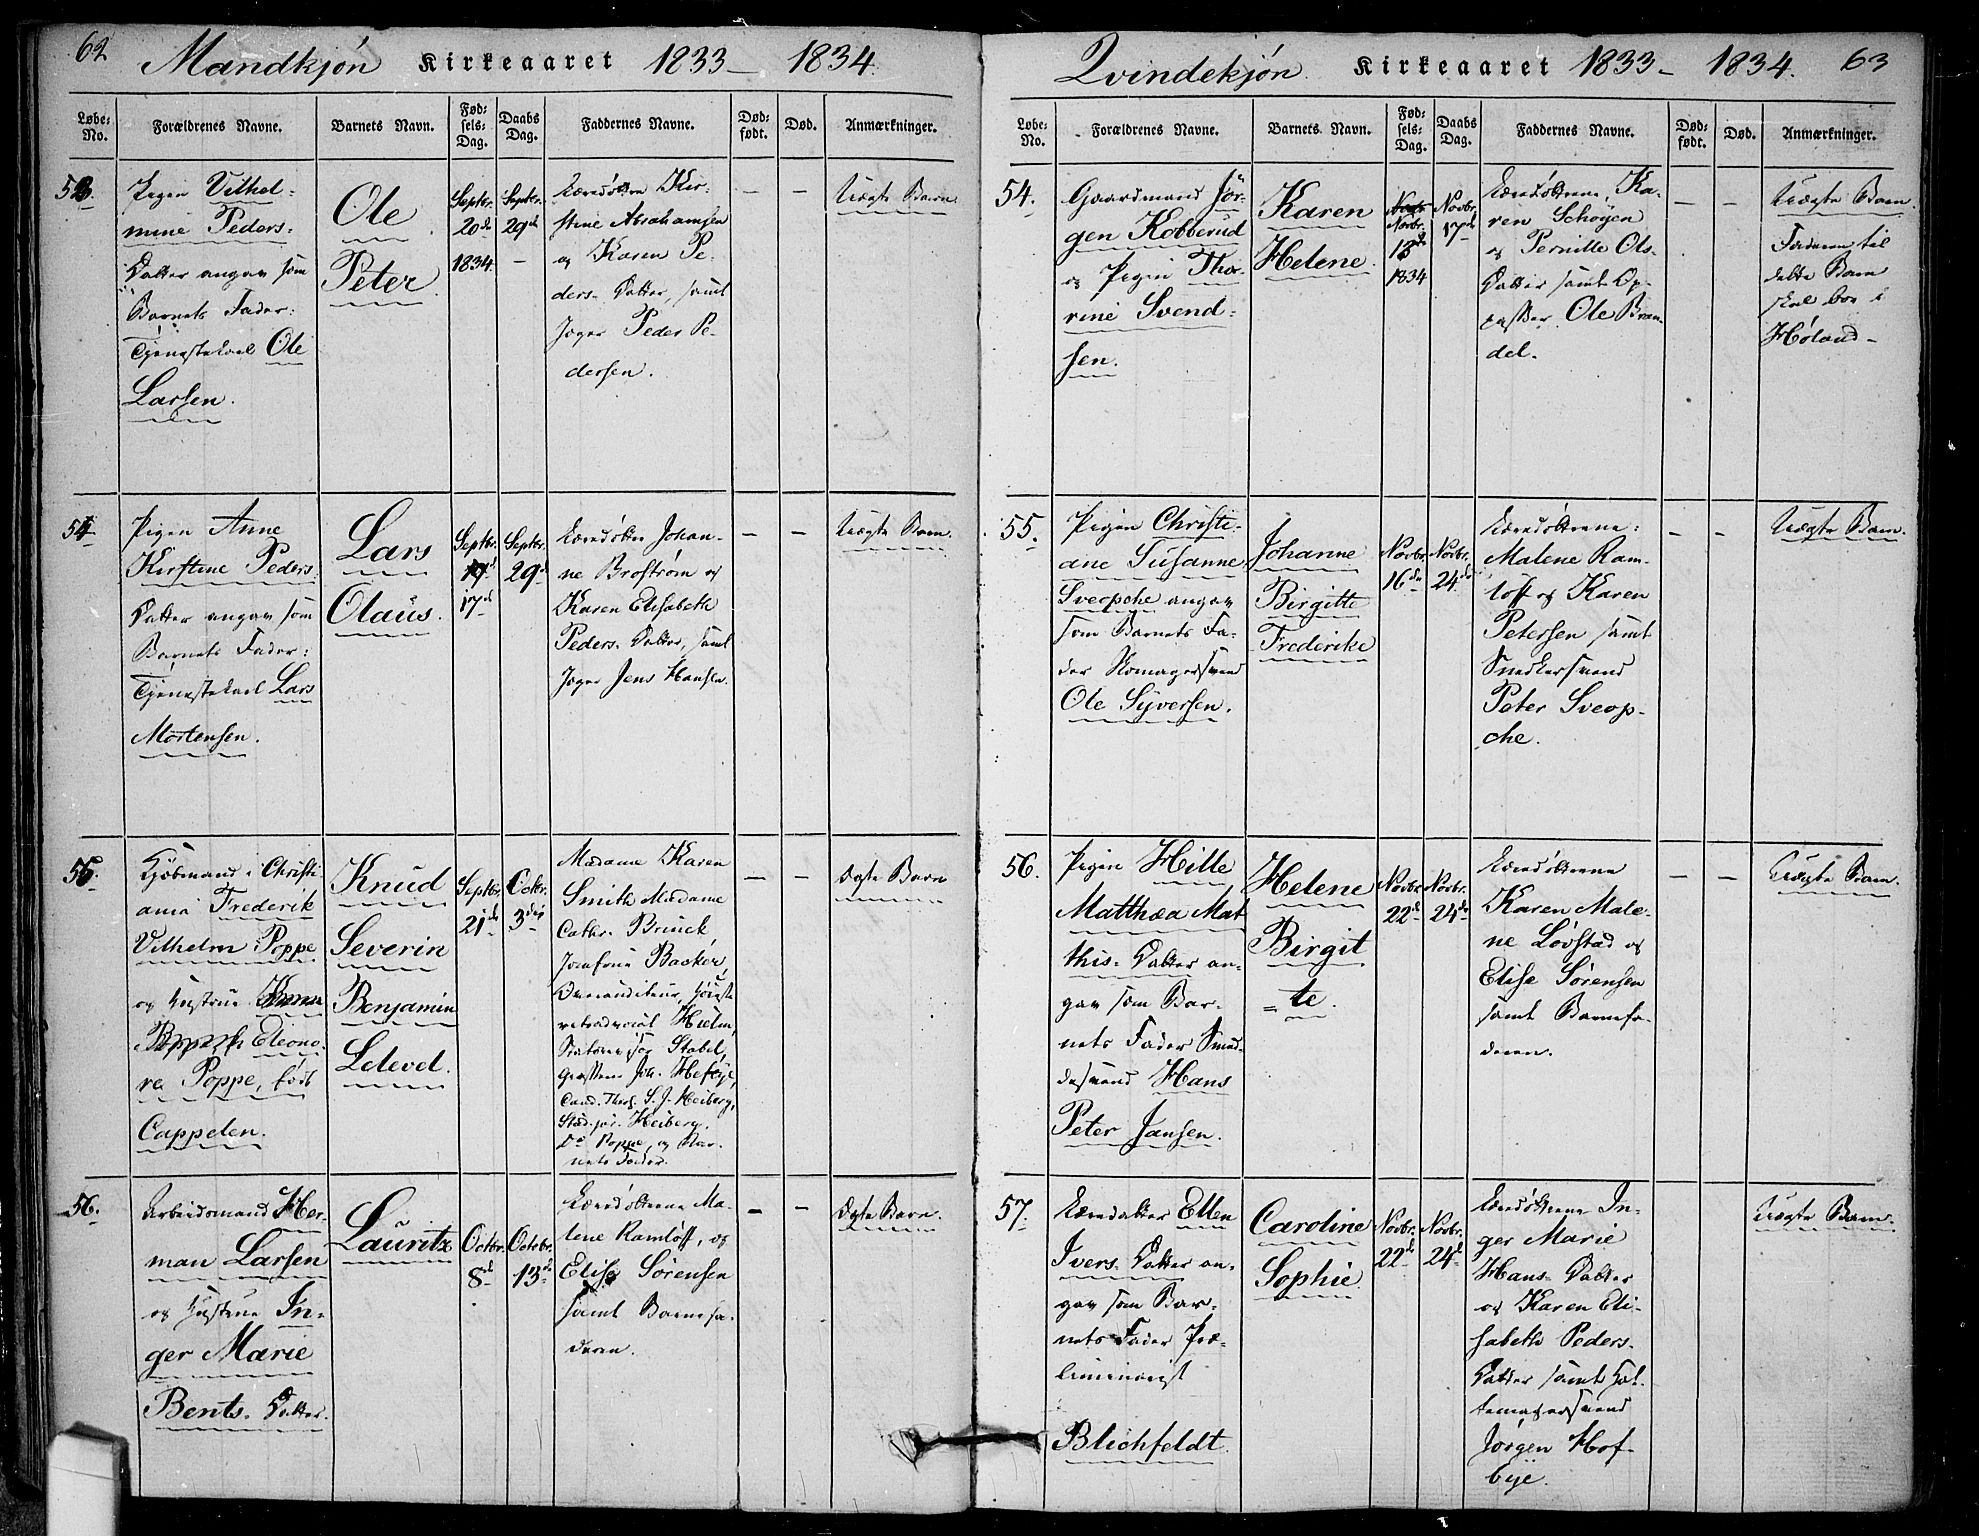 62 Mandkjøn Kirkeaaret 1833 - 1834.
Løbe-No. Forældrenes Navne. Barnets Navn. Fødsels-Dag. Daabs Dag. Faddernes Navne. Dødfødt. Død. Anmærkninger.
53.
Pigen Vilhel-
mine Peders-
Datter angav som
Barnets Fader:
Tjenestekarl Ole
Larsen.
Ole
Peter
Septbr.
20de
1834.
Septbr.
29d
Kir-
stine Abrahamsen
og Karen Pe-
ders-Datter, samt
Peder Pe-
dersen.
— —
Uægte Barn
54
Pigen Anne
Kirstine Peders-
Datter angav som
Barnets Fader:
Tjenestekarl Lars
Mortensen.
Lars
Olaus.
Septbr.
17d
Septbr.
29d
Johan-
ne Broström og
Karen Elisabeth
Peders-Datter, samt
Jens Hansen.
— —
Uægte Barn.
55.
Kjøbmand i Christi-
ania Frederik
Vilhelm Poppe
og Hustrue
Eleono-
re Poppe, født
Cappelen.
Knud
Severin
Benjamin
Lelevel.
Septbr.
21de
Octbr.
3die
Madame Karen
Smith Madame
Cathr. Brinck,
Jomfrue Backer,
Hielm,
Stabel,
Joh. Heftye,
Cand. Theol. S. J. Heiberg,
Stud. jur. Heiberg.
Do Poppe, og Bar-
nets Fader.
— —
Ægte Barn
56.
Arbeidsmand Her-
man Larsen
og Hustrue In-
ger Marie
Bents-Datter.
Lauritz
Octbr.
8d
Octobr.
13de
Ma-
lene Ramlöff, og
Elise Sörensen
samt Barnefa-
deren.
— —
Ægte Barn.
Qvindekjøn. Kirkeaaret 1833 - 1834. 63
Løbe-No. Forældrenes Navne. Barnets Navn. Fødsels-Dag. Daabs Dag. Faddernes Navne. Dødfødt. Død. Anmærkninger.
54.
Gaardmand Jör-
gen Kobberud
og Pigen Tho-
rine Svend-
sen.
Karen
Helene.
Novbr.
13de
1834
Novbr.
17de
Ka-
ren Schöyen
og Pernille Ols-
Datter samt Op-
passer Ole Bran-
del.
— —
Uægte Barn.
Faderen til
dette Barn
skal boe i
Høland-
55.
Pigen Christi-
ane Susanne
Sveopche angav
som Barnets Fa-
der Skomagersvend
Ole Syversen.
Johanne
Birgitte
Frederike
Novbr.
16de
Novbr.
24de
Malene Ram-
löff og Karen
Petersen samt
Snedkersvend
Peter Sveop-
che.
- -
Uægte Barn.
56.
Pigen Hille
Matthæa Mat-
this-Datter an-
gav som Bar-
nets Fader Smed-
desvend Hans
Peter Jansen.
Helene
Birgit
=te.
Novbr.
22de
Novbr.
24de
Karen Male-
ne Løvstad og
Elise Sørensen
samt Barnefa-
deren.
— —
Uægte Barn.
57.
Ellen
Ivers-Datter an-
gav som Bar-
nets Fader Præ-
liminærist
Blichfeldt.
Caroline
Sophie.
Novbr.
22d
Novbr.
24d
In-
ger Marie
Hans-Datter
og Karen Eli-
sabeth Peders-
Datter samt Hat-
temagersvend
Jørgen Hof-
bye.
Uægte Barn.